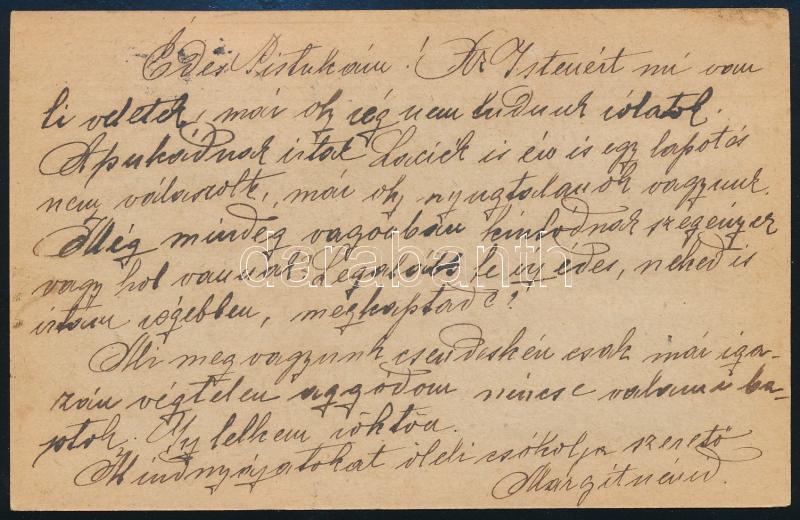 Édes Pistukám! Az Istenért mi van
ti veletek, már oly rég nem tudunk rólatok.
Apukádnak irtak Laciék is én is egy lapot és
nem válaszolt, már oly nyugtalanok vagyunk.
Még mindég vagonban kinlódnak szegények
vagy hol vannak? Legalább te irj édes, neked is
irtam régebben, megkaptad e?
Mi meg vagyunk csendeskén csak már iga-
zán végtelen aggódom nincs e valami ba-
jotok. Irj lelkem róktön.
Mindnyájatokat öleli csókolja szerető
Margitnénéd.
darabanth